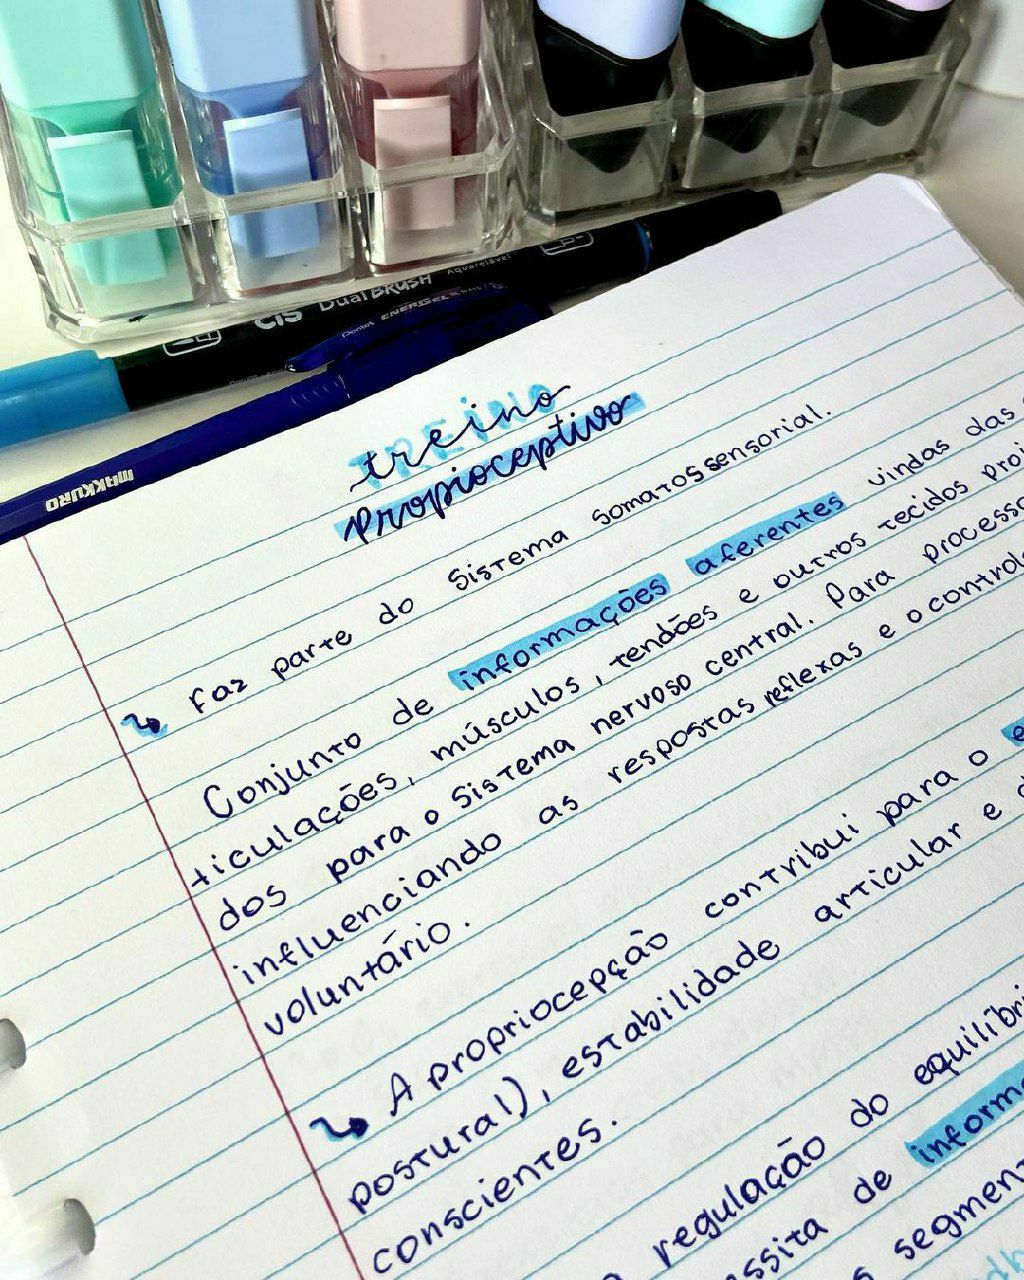 CiS Dual BRUSH Aquarelável
Pentel ENERGEL
MAKKURO
TREINO
treino
propioceptivo
Faz parte do sistema somatossensorial.
Conjunto de informações aferentes vindas das
ticulações, músculos, tendões e outros tecidos
dos para o sistema nervoso central. Para
influenciando as respostas reflexas e o
voluntário.
A propriocepção contribui para o
postural), estabilidade articular e
conscientes.
regulação do
de
segmen